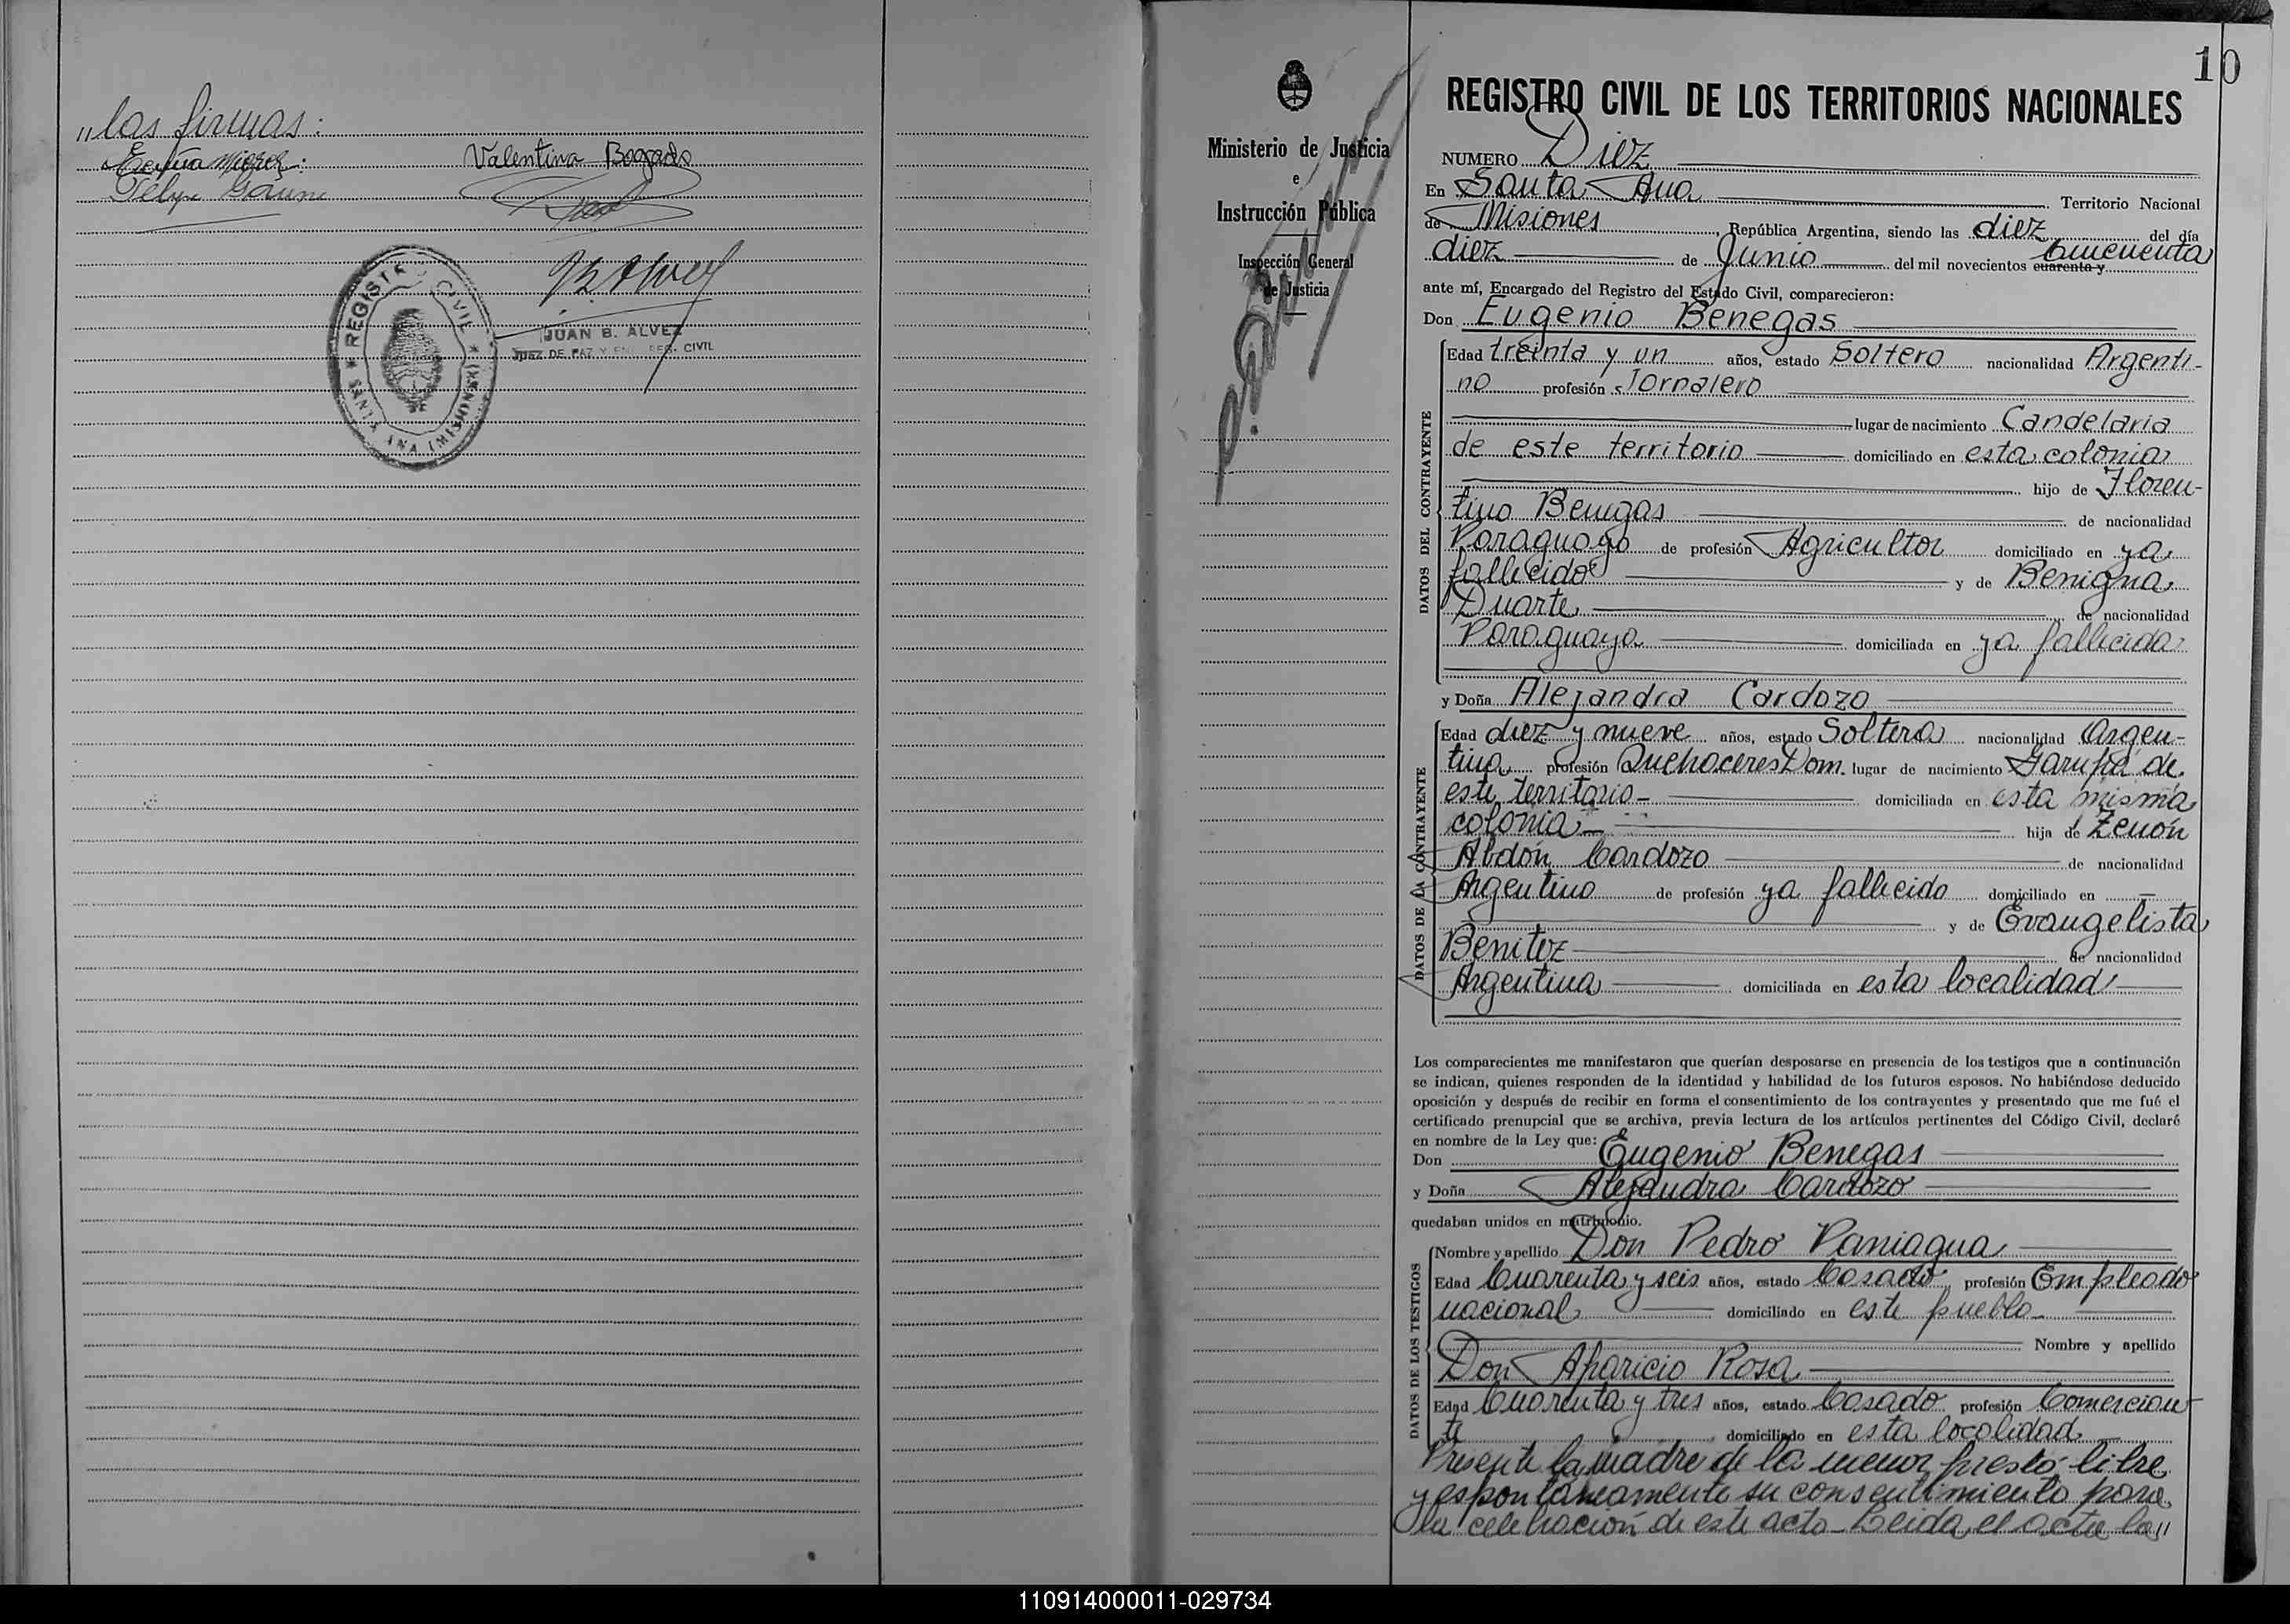 "las firmas:
Valentina Bogado
JUAN B. ALVEZ
JUEZ DE PAZ Y ENC. REG. CIVIL
★ REGISTRO CIVIL ★ SANTA ANA (MISIONES)
10
Ministerio de Justicia
e
Instrucción Pública
Inspección General
de Justicia
REGISTRO CIVIL DE LOS TERRITORIOS NACIONALES
NUMERO Diez
En Santa Ana Territorio Nacional
de Misiones, República Argentina, siendo las diez del día
diez de Junio del mil novecientos cuarenta y cincuenta
ante mí, Encargado del Registro del Estado Civil, comparecieron:
Don Eugenio Benegas
DATOS DEL CONTRAYENTE
Edad treinta y un años, estado Soltero nacionalidad Argenti-
no profesión Jornalero
lugar de nacimiento Candelaria
de este territorio domiciliado en esta colonia
hijo de Floren-
tino Benegas de nacionalidad
Paraguayo de profesión Agricultor domiciliado en ya
fallecido y de Benigna
Duarte de nacionalidad
Paraguaya domiciliada en ya fallecida
y Doña Alejandra Cardozo
DATOS DE LA CONTRAYENTE
Edad diez y nueve años, estado Soltera nacionalidad Argen-
tina profesión Quehaceres Dom. lugar de nacimiento Garupá de
este territorio- domiciliada en esta misma
colonia- hija de Zenón
Abdón Cardozo de nacionalidad
Argentino de profesión ya fallecido domiciliado en —
y de Evangelista
Benitez de nacionalidad
Argentina domiciliada en esta localidad
Los comparecientes me manifestaron que querían desposarse en presencia de los testigos que a continuación
se indican, quienes responden de la identidad y habilidad de los futuros esposos. No habiéndose deducido
oposición y después de recibir en forma el consentimiento de los contrayentes y presentado que me fué el
certificado prenupcial que se archiva, previa lectura de los artículos pertinentes del Código Civil, declaré
en nombre de la Ley que:
Don Eugenio Benegas
y Doña Alejandra Cardozo
quedaban unidos en matrimonio.
DATOS DE LOS TESTIGOS
Nombre y apellido Don Pedro Paniagua
Edad Cuarenta y seis años, estado Casado profesión Empleado
nacional domiciliado en este pueblo-
Nombre y apellido
Don Aparicio Rosa
Edad Cuarenta y tres años, estado Casado profesión Comercian-
te domiciliado en esta localidad.
Presente la madre de la menor prestó libre
y espontaneamente su consentimiento para
la celebración de este acto- Leida el acta la"
110914000011-029734